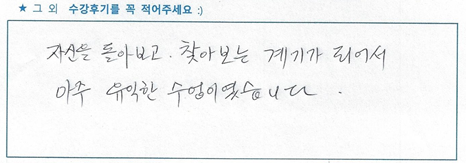 ★ 그 외 수강후기를 꼭 적어주세요 :)
자신을 돌아보고. 찾아보는 계기가 되어서
아주 유익한 수업이였습니다.